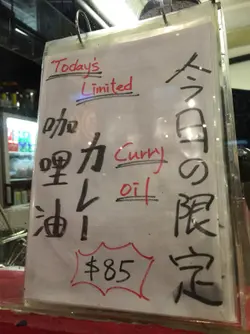 今日の限定
Today's
Limited
カレー
咖哩油
Curry
oil
$85